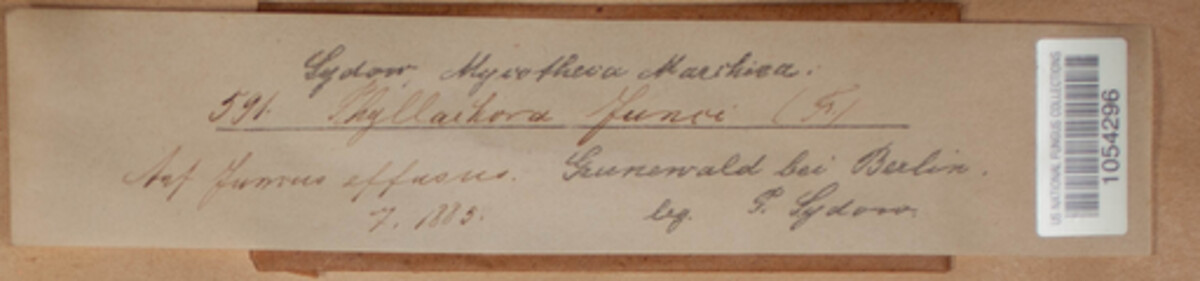 Sydow, Mycotheca Marchica.
591. Phyllachora Junci (Fr.)
Auf Juncus effusus. Grunewald bei Berlin.
7. 1885. leg. P. Sydow.
US NATIONAL FUNGUS COLLECTIONS
1054296